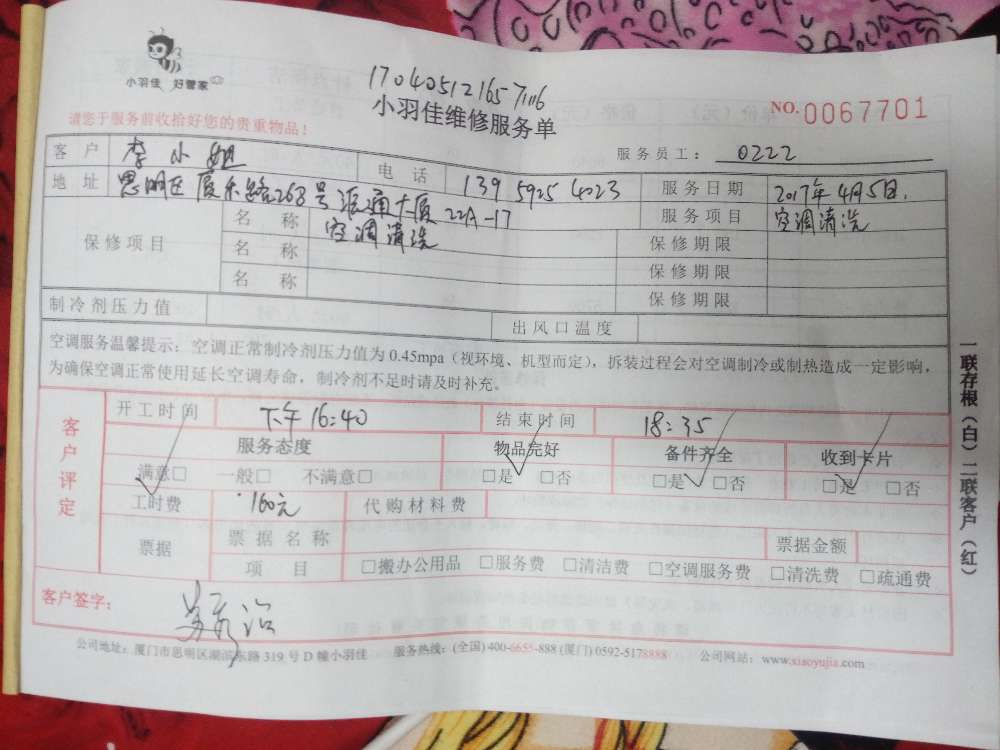 小羽佳 好管家
170405121657106
小羽佳维修服务单
NO.0067701
请您于服务前收拾好您的贵重物品!
服务员工: 0222
客户 李小姐 电话 139 5925 4023 服务日期 2017年4月5日.
地址 思明区厦禾路268号 通大厦22A-17 服务项目 空调清洗
保修项目 名称 空调清洗 保修期限
名称 保修期限
名称 保修期限
制冷剂压力值 出风口温度
空调服务温馨提示:空调正常制冷剂压力值为0.45mpa(视环境、机型而定),拆装过程会对空调制冷或制热造成一定影响,
为确保空调正常使用延长空调寿命,制冷剂不足时请及时补充。
客户评定
开工时间 下午16:40 结束时间 18:35
服务态度 物品完好 备件齐全 收到卡片
满意□ 一般□ 不满意□ □是 □否 □是 □否 □是 □否
工时费 160元 代购材料费
票据 票据名称 票据金额
项目 □搬办公用品 □服务费 □清洁费 □空调服务费 □清洗费 □疏通费
客户签字:
公司地址:厦门市思明区湖滨东路319号D幢小羽佳 服务热线:(全国)400-6655-888 (厦门)0592-5178888 公司网站:www.xiaoyujia.com
一联存根(白)二联客户(红)